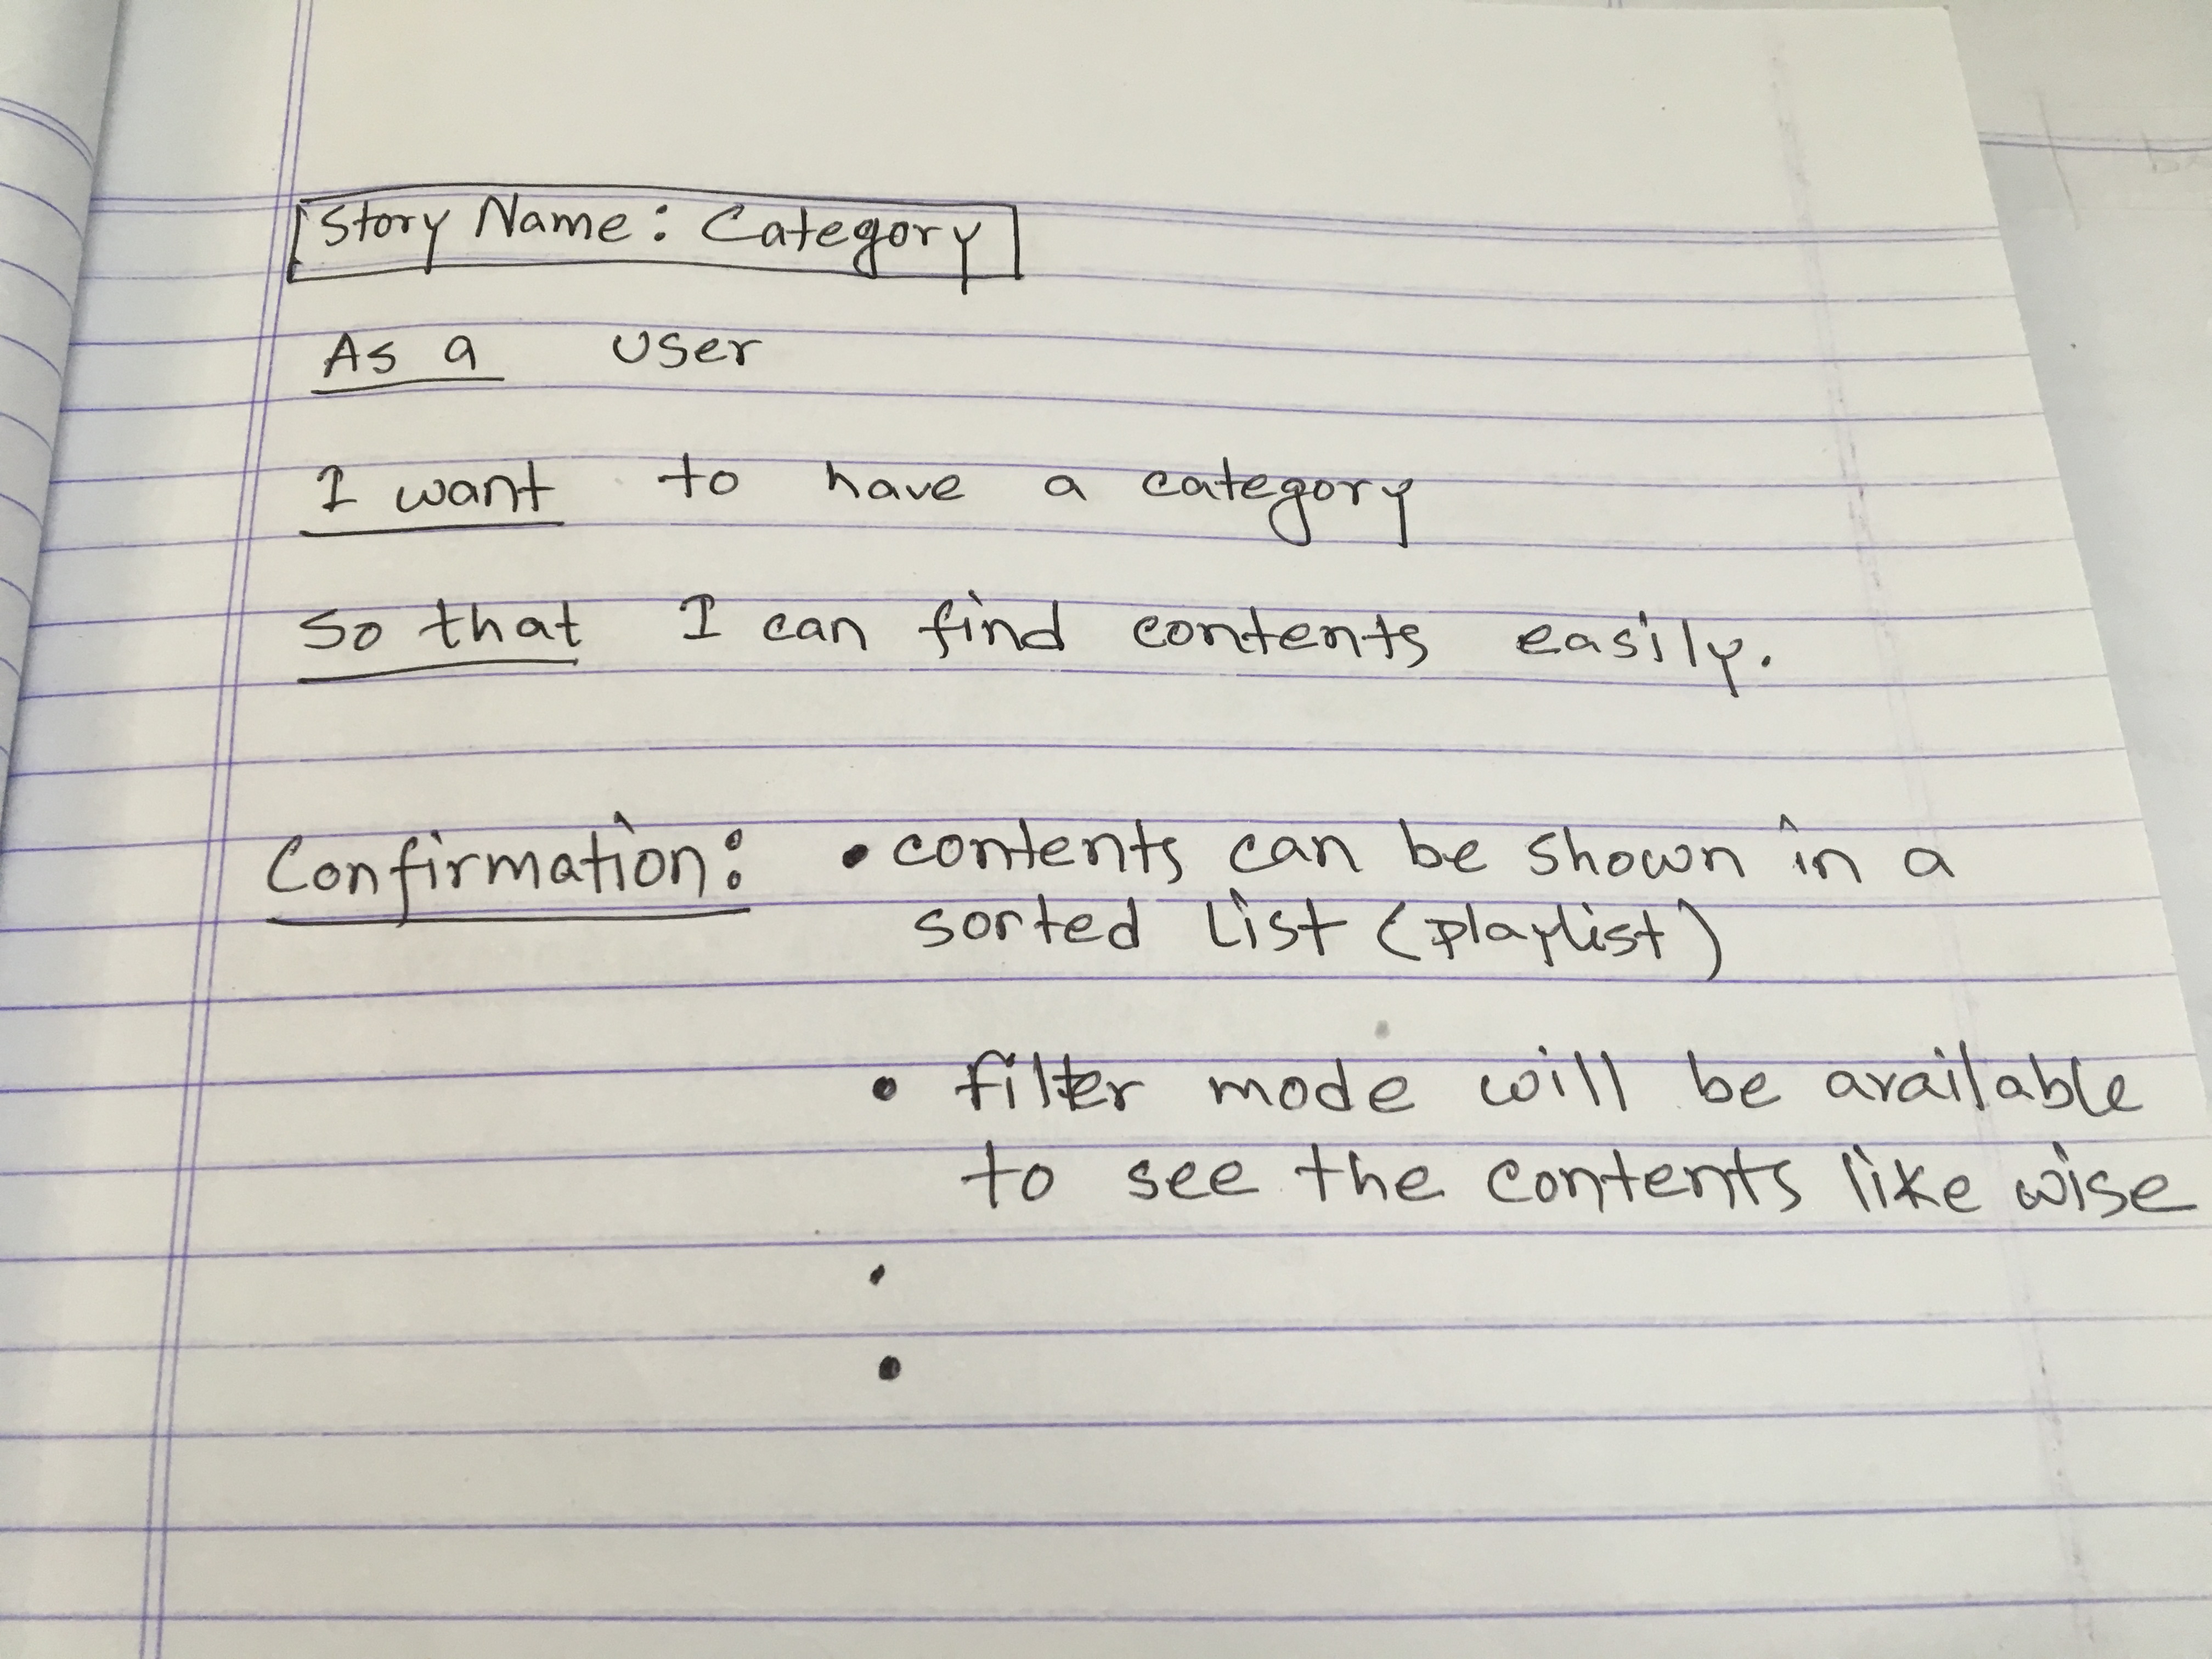 Story Name: Category
As a user
I want to have a category
So that I can find contents easily.
Confirmation: • contents can be shown in a
sorted list (playlist)
• filter mode will be available
to see the contents like wise
•
•